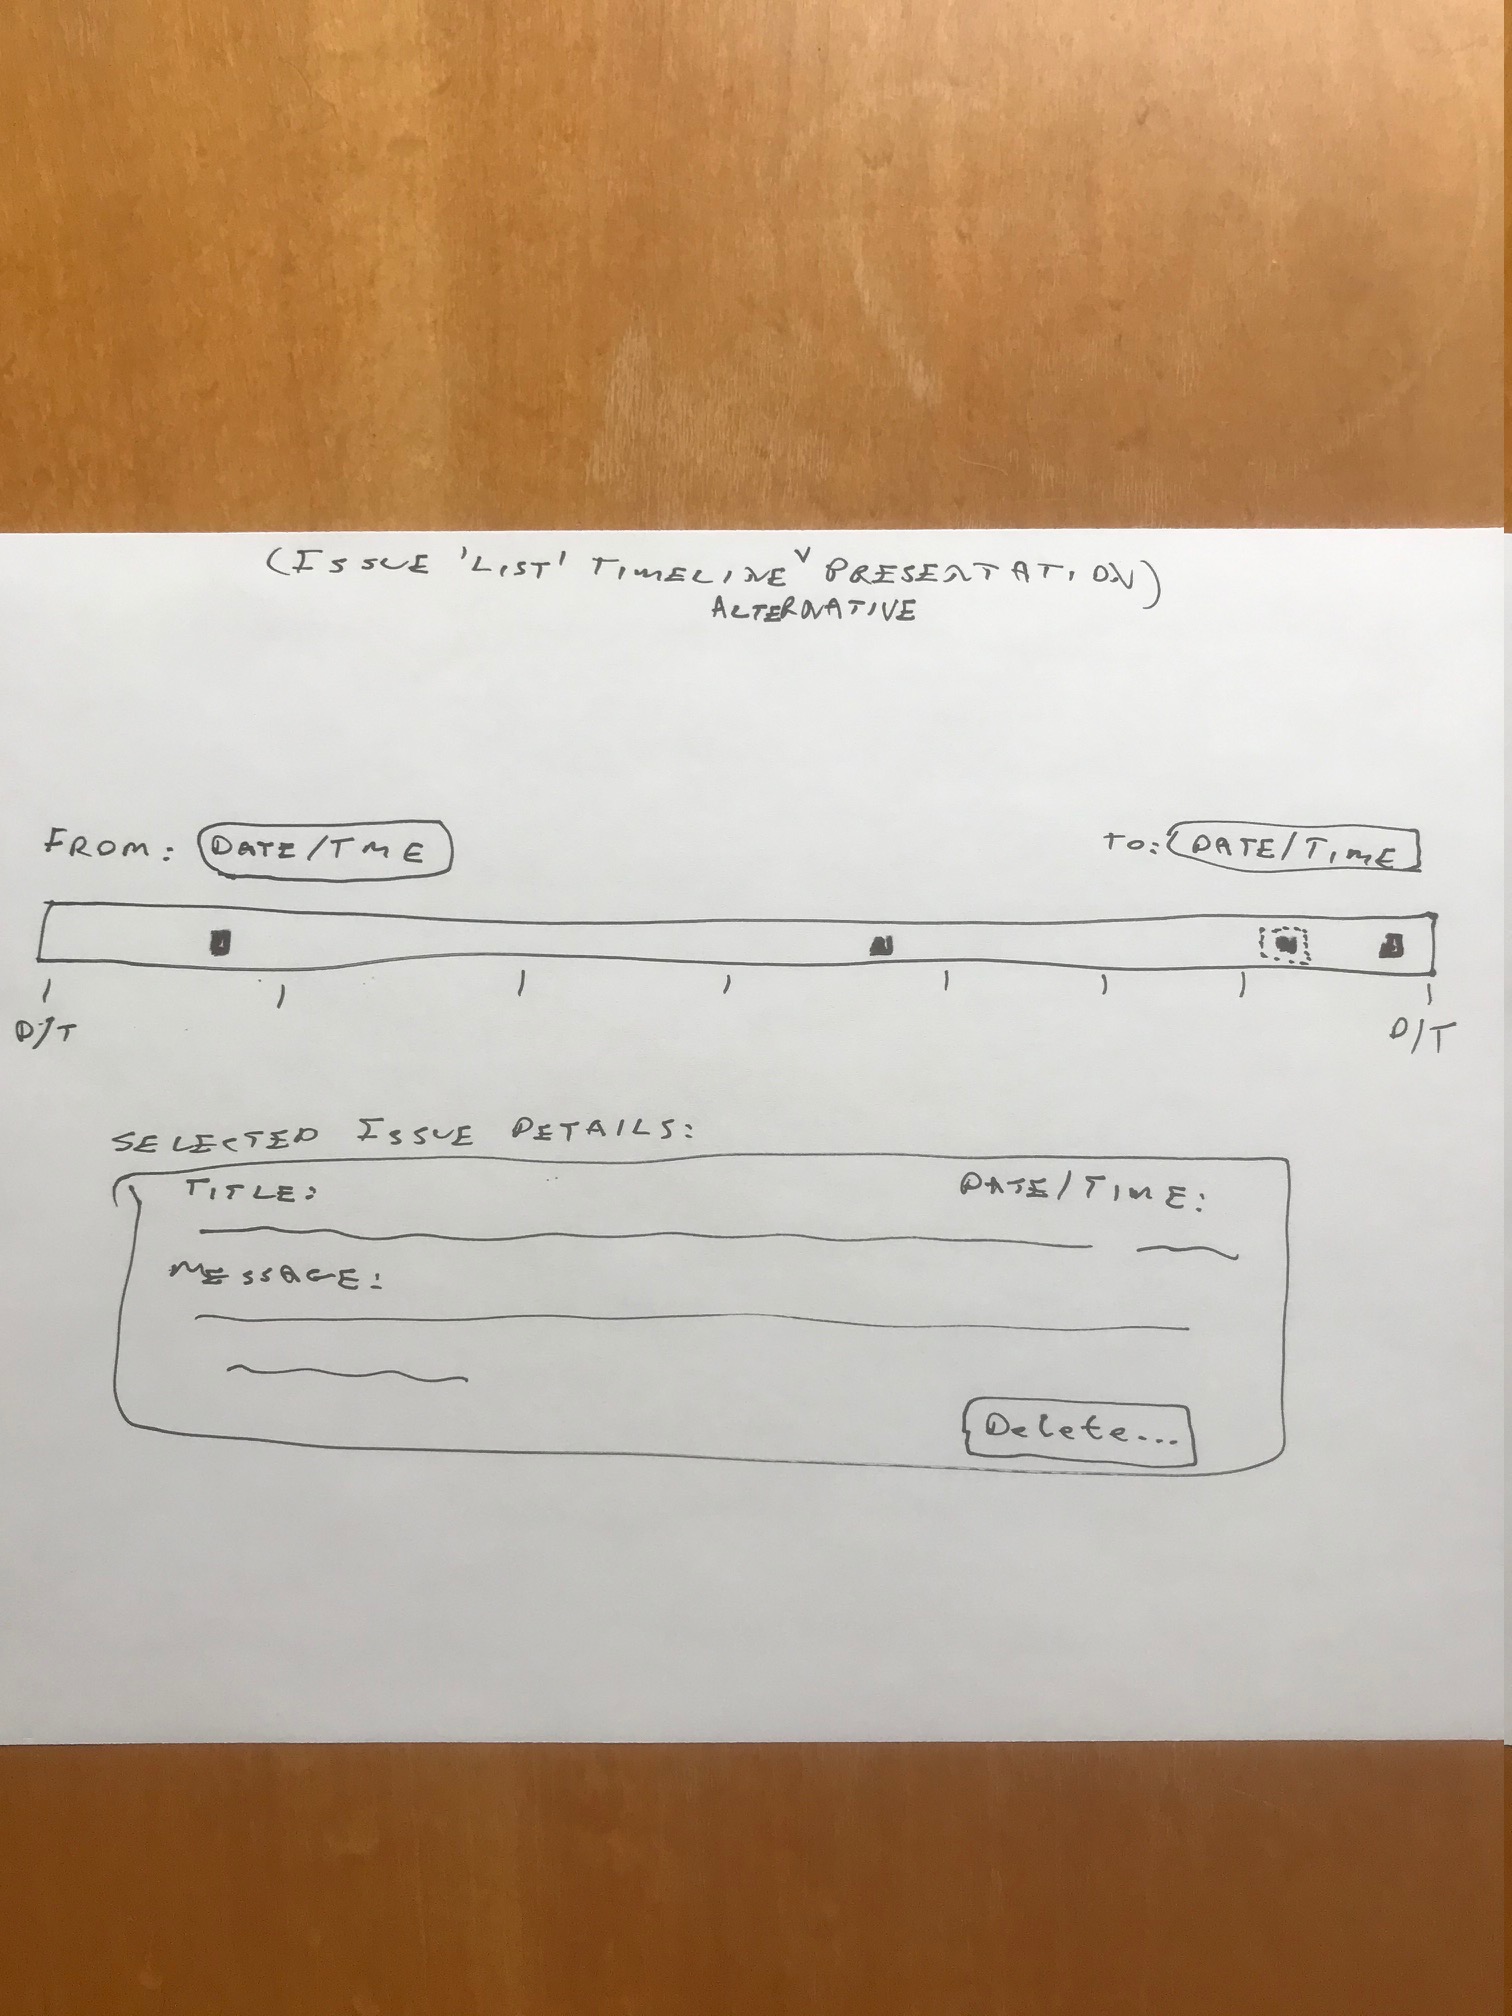 (ISSUE 'LIST' TIMELINE ALTERNATIVE PRESENTATION)
FROM: DATE/TME TO: DATE/TIME
D/T D/T
SELECTED ISSUE DETAILS:
TITLE: DATE/TIME:
MESSAGE:
Delete...